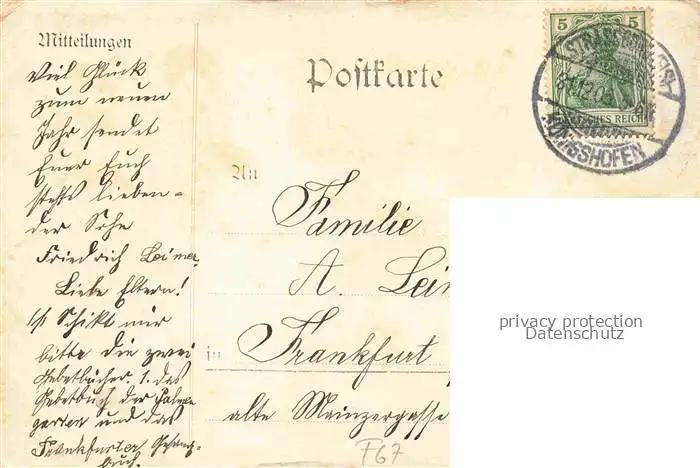 Mitteilungen
Viel Glück
zum neuen
Jahr sendet
Euer Euch
stehts lieben-
der Sohn
Friedrich
Liebe Eltern!
Schikt mir
bitte die zwei
Gebetbücher. 1. das
Gebetbuch der
garten und das
Frankfurter Gesang-
buch.
Postkarte
5 5
DEUTSCHES REICH
An
Familie
A. Lei
in Frankfurt
alte Mainzergasse
F67
privacy protection
Datenschutz